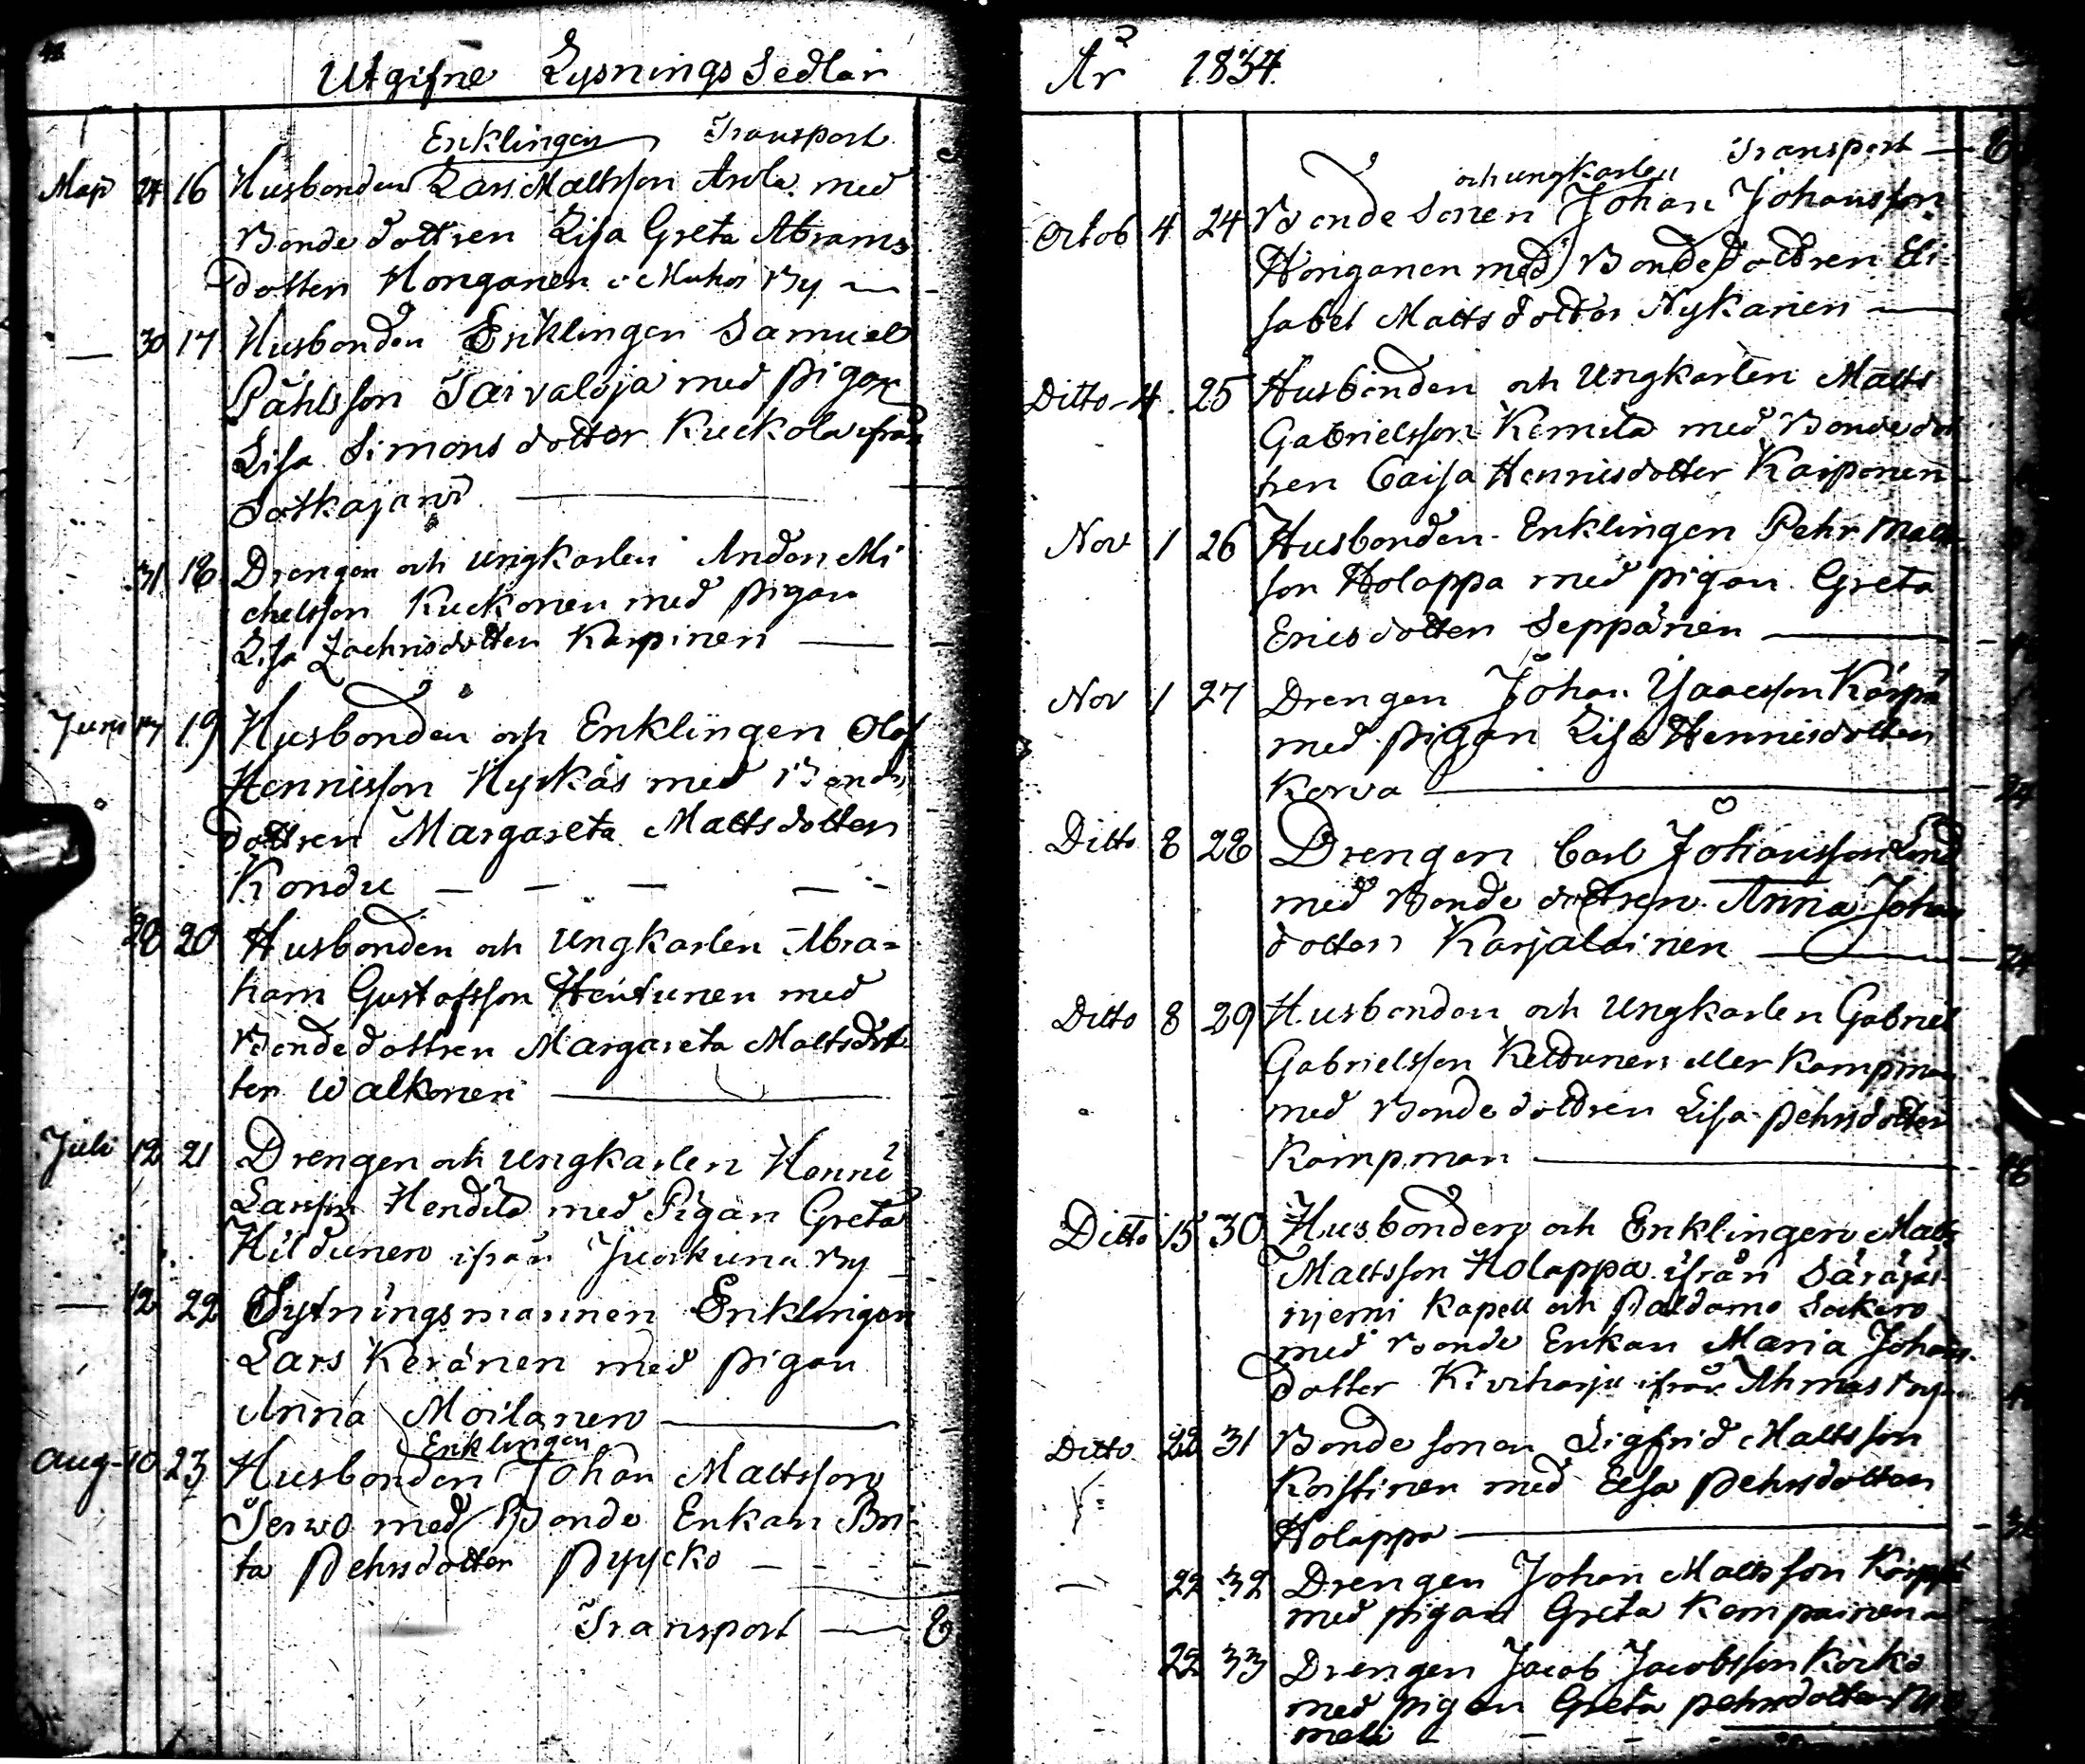 Utgifne Lysnings Sedlar
Enklingen Transport
Maji 24 16 Husbonden Lars Mattsson Arola med
Bonde dottren Lisa Greta Abrams
dotter Honganen i Muhos By
— 30 17 Husbonden Enklingen Samuel
Påhlsson Taivaloja med pigan
Lisa Simons dotter Kuckola ifrån
Sotkajarvi
31 18 Drengen och ungkarlen Anders Mi
chelsson Kuckonen med pigan
Lisa Zachrisdotter Karpinen
Juni 19 Husbonden och Enklingen Olof
Hennisson Hyrkäs med Bonde
dottren Margareta Mattsdotter
Kondu
28 20 Husbonden och ungkarlen Abra=
ham Gustafsson Heutunen med
Bondedottren Margareta Mattsdot
ter Walkonen
Juli 12 21 Drengen och ungkarlen Henric
Larsson Hendilä med Pigan Greta
Hildunen ifrån Juorkuna By
— 12 22 Sytningsmannen Enklingen
Lars Keränen med pigan
Anna Moilanen
Enklingen
Aug 10 23 Husbonden Johan Mattsson
Terwo med Bonde Enkan Bri
ta Pehrsdotter Pyycko
Transport — 8
År 1834.
Transport — 8
och ungkarlen
Octob 4 24 Bonde Sonen Johan Johansson
Honganen med Bondedottren Eli
sabet Matts dotter Nykänen
Ditto 4 25 Husbonden och Ungkarlen Matts
Gabrielsson Kemilä med Bondedot
tren Caisa Hennisdotter Kaiponen
Nov 1 26 Husbonden Enklingen Pehr Matts
son Holappa med pigan Greta
Ericsdotter Seppänen
Nov 1 27 Drengen Johan Isacsson Kärpä
med pigan Lisa Hennisdotter
Korva 24
Ditto 8 28 Drengen Carl Johansson Lind
med Bonde dottren Anna Johans
dotter Karjalainen 24
Ditto 8 29 Husbonden och Ungkarlen Gabriel
Gabrielsson Keldunen eller Kampman
med Bonde dottren Lisa Pehrsdotter
Kampman 16
Ditto 15 30 Husbonden och Enklingen Matts
Mattsson Holappa ifrån Säräjäs
niemi Kapell och Paldamo Sockern
med Bonde Enkan Maria Johans
dotter Kiviharju ifrån Ahmas by
Ditto 22 31 Bonde sonen Sigfrid Mattsson
Korstinen med Elsa Pehrsdotter
Holappa
— 22 32 Drengen Johan Mattsson Kärppä
med pigan Greta Kempainen
22 33 Drengen Jacob Jacobsson Korko
med pigan Greta Pehrsdotter